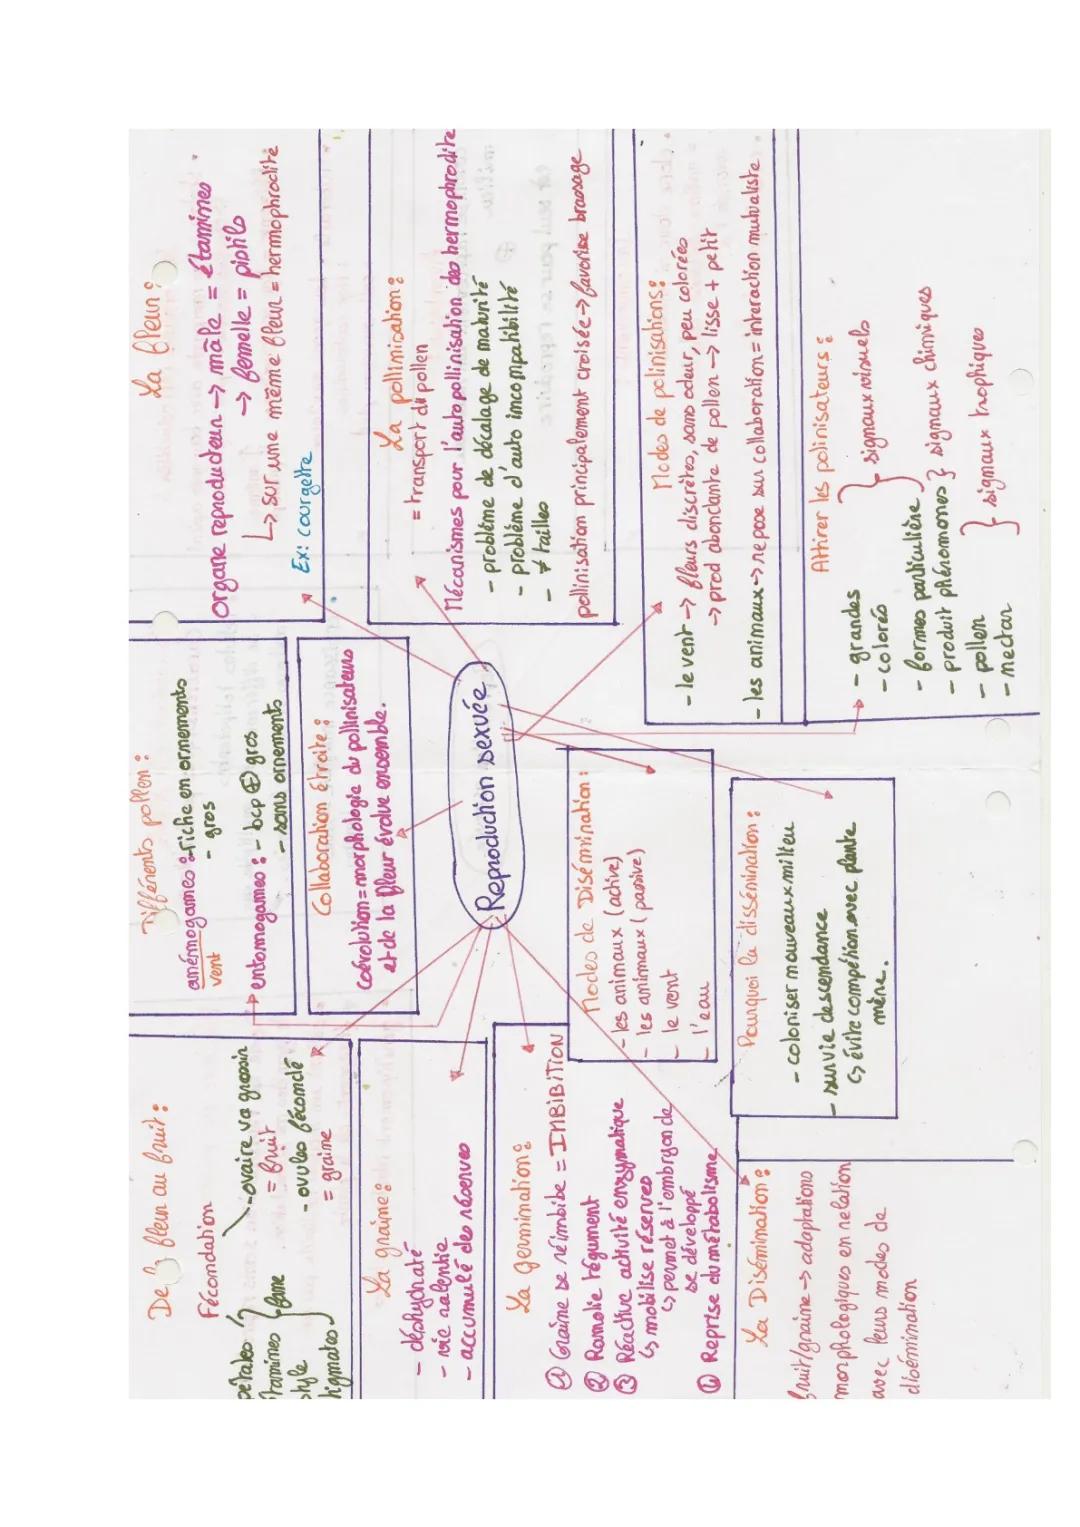 De la fleur au fruit :
Fécondation
petales
tamines
style
tigmates
fane
- ovaire va grossir
= fruit
- ovules fécondé
= graine
Différents pollen :
anémogames : - riche en ornements
vent
- gros
entomogames : - bcp ⊕ gros
- sans ornements
La fleur :
organe reproducteur → mâle = étamines
→ femelle = pistils
↳ sur une même fleur = hermophrodite
Ex: courgette
Collaboration étroite :
Coévolution = morphologie du pollinisateurs
et de la fleur évolue ensemble.
La pollinisation :
= transport du pollen
Mécanismes pour l'auto pollinisation des hermophrodite
- problème de décalage de maturité
- problème d'auto imcompatibilité
- ≠ tailles
pollinisation principalement croisée → favorise brassage
La graine :
- déshydraté
- vie ralentie
- accumulé des réserves
Reproduction sexuée
La germination :
① Graine se réimbibe = IMBIBITION
② Ramolie tégument
③ Réactive activité enzymatique
↳ mobilise réserves
↳ permet à l'embryon de
se développé
④ Reprise du métabolisme
Modes de Disémination :
- les animaux (active)
- les animaux (passive)
- le vent
- l'eau
Modes de polinisations :
- le vent → fleurs discrètes, sans odeur, peu colorées
→ prod abondante de pollen → lisse + petit
- les animaux → repose sur collaboration = interaction mutualiste
La Disémination :
fruit/graine → adaptations
morphologiques en relation
avec leurs modes de
disémination
Pourquoi la dissémination :
- coloniser nouveaux milieu
- survie descendance
↳ évite compétion avec plante
mère.
Attirer les polinisateurs :
- grandes
- colorés
} signaux visuels
- formes particulière
- produit phénomones } signaux chimiques
- pollen
- nectar
} signaux trophiques